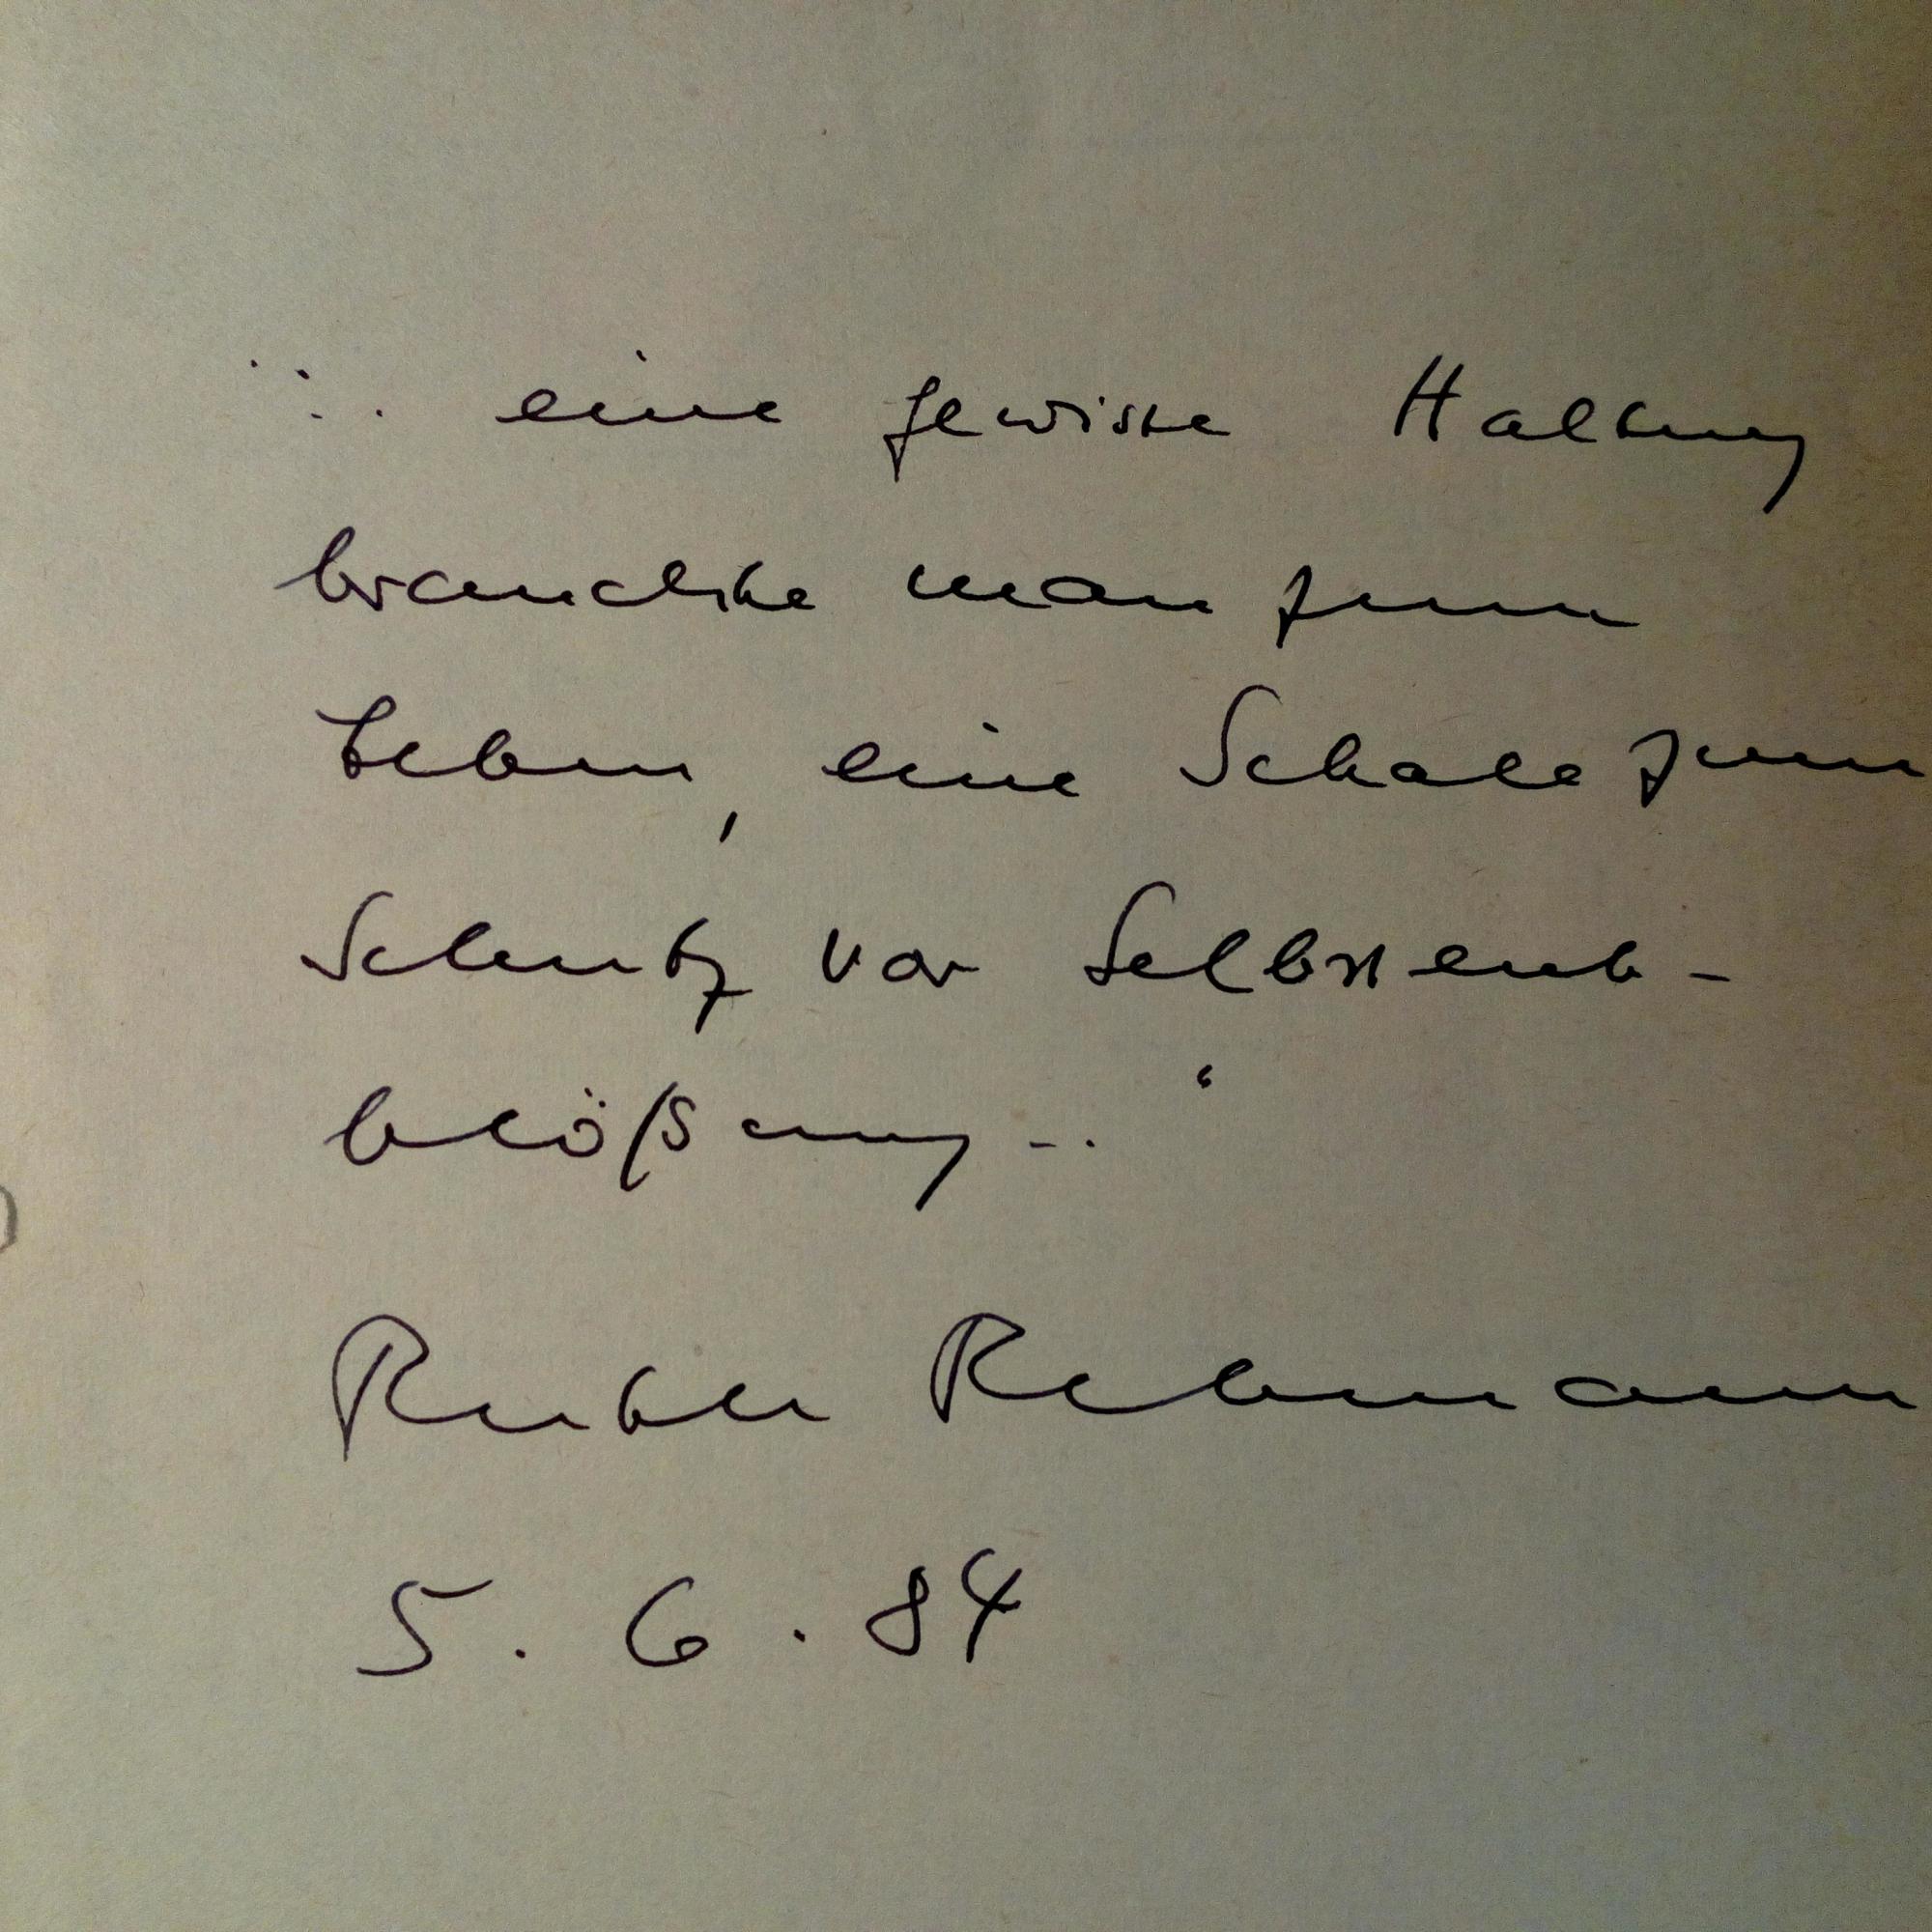 ... eine gewisse Haltung
brauchte man zum
Leben, eine Schale zum
Schutz vor Selbstent-
blößung ... "
Ruth Rehmann
5. 6. 84